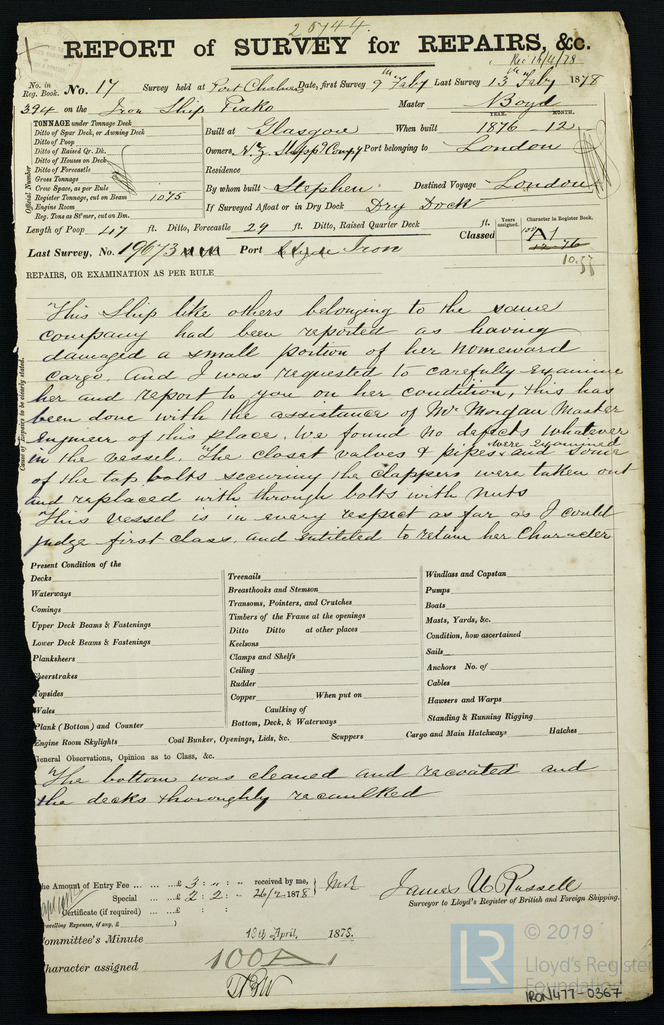 25744.
REPORT of SURVEY for REPAIRS, &c.
Rec 16/4/78
No. in Reg. Book. No. 17 Survey held at Port Chalmers Date, first Survey 9th Feby Last Survey 13th Feby 1878
394 on the Iron Ship Piako Master Boyd
TONNAGE under Tonnage Deck
Ditto of Spar Deck, or Awning Deck
Ditto of Poop
Ditto of Raised Qr. Dk.
Ditto of Houses on Deck
Ditto of Forecastle
Gross Tonnage
Crew Space, as per Rule
Register Tonnage, cut on Beam 1075
Engine Room
Reg. Tons as St'mer, cut on Bm.
Official Number
YEAR. MONTH.
Built at Glasgow When built 1876-12
Owners, N.Z. Shipp'g Compy Port belonging to London
Residence
By whom built Stephen Destined Voyage London
If Surveyed Afloat or in Dry Dock Dry Dock
Length of Poop 47 ft. Ditto, Forecastle 29 ft. Ditto, Raised Quarter Deck ft.
Classed Years assigned. Character in Register Book.
100 A1
12.76
Last Survey, No. 19673 Port Clyde Iron
10.77
REPAIRS, OR EXAMINATION AS PER RULE
Cause of Repairs to be clearly stated.
This Ship like others belonging to the same
company had been reported as having
damaged a small portion of her homeward
cargo. And I was requested to carefully examine
her and report to you on her condition, this has
been done with the assistance of Mr Morgan Master
Engineer of this place. We found no defects whatever
in the vessel. The closet valves & pipes were examined and some
of the tap bolts securing the clappers were taken out
and replaced with through bolts with nuts
This vessel is in every respect as far as I could
judge first class, and entitled to retain her Character
Present Condition of the
Decks
Waterways
Comings
Upper Deck Beams & Fastenings
Lower Deck Beams & Fastenings
Planksheers
Sheerstrakes
Topsides
Wales
Plank (Bottom) and Counter
Treenails
Breasthooks and Stemson
Transoms, Pointers, and Crutches
Timbers of the Frame at the openings
Ditto Ditto at other places
Keelsons
Clamps and Shelfs
Ceiling
Rudder
Copper When put on
Caulking of
Bottom, Deck, & Waterways
Windlass and Capstan
Pumps
Boats
Masts, Yards, &c.
Condition, how ascertained
Sails
Anchors No. of
Cables
Hawsers and Warps
Standing & Running Rigging
Engine Room Skylights Coal Bunker, Openings, Lids, &c. Scuppers Cargo and Main Hatchways Hatches
General Observations, Opinion as to Class, &c.
The bottom was cleaned and recoated and
the decks thoroughly recaulked
The Amount of Entry Fee ... ... £ 3 : " : " received by me,
Special ... ... £ 2 : 2 : " 26/2 1878
Certificate (if required) ... £ : :
(Travelling Expenses, if any, £ )
James U Russell
Surveyor to Lloyd's Register of British and Foreign Shipping.
Committee's Minute 18th April, 1878.
Character assigned 100A1
© 2019
LR
Lloyd's Register
Foundation
IRON477-0367